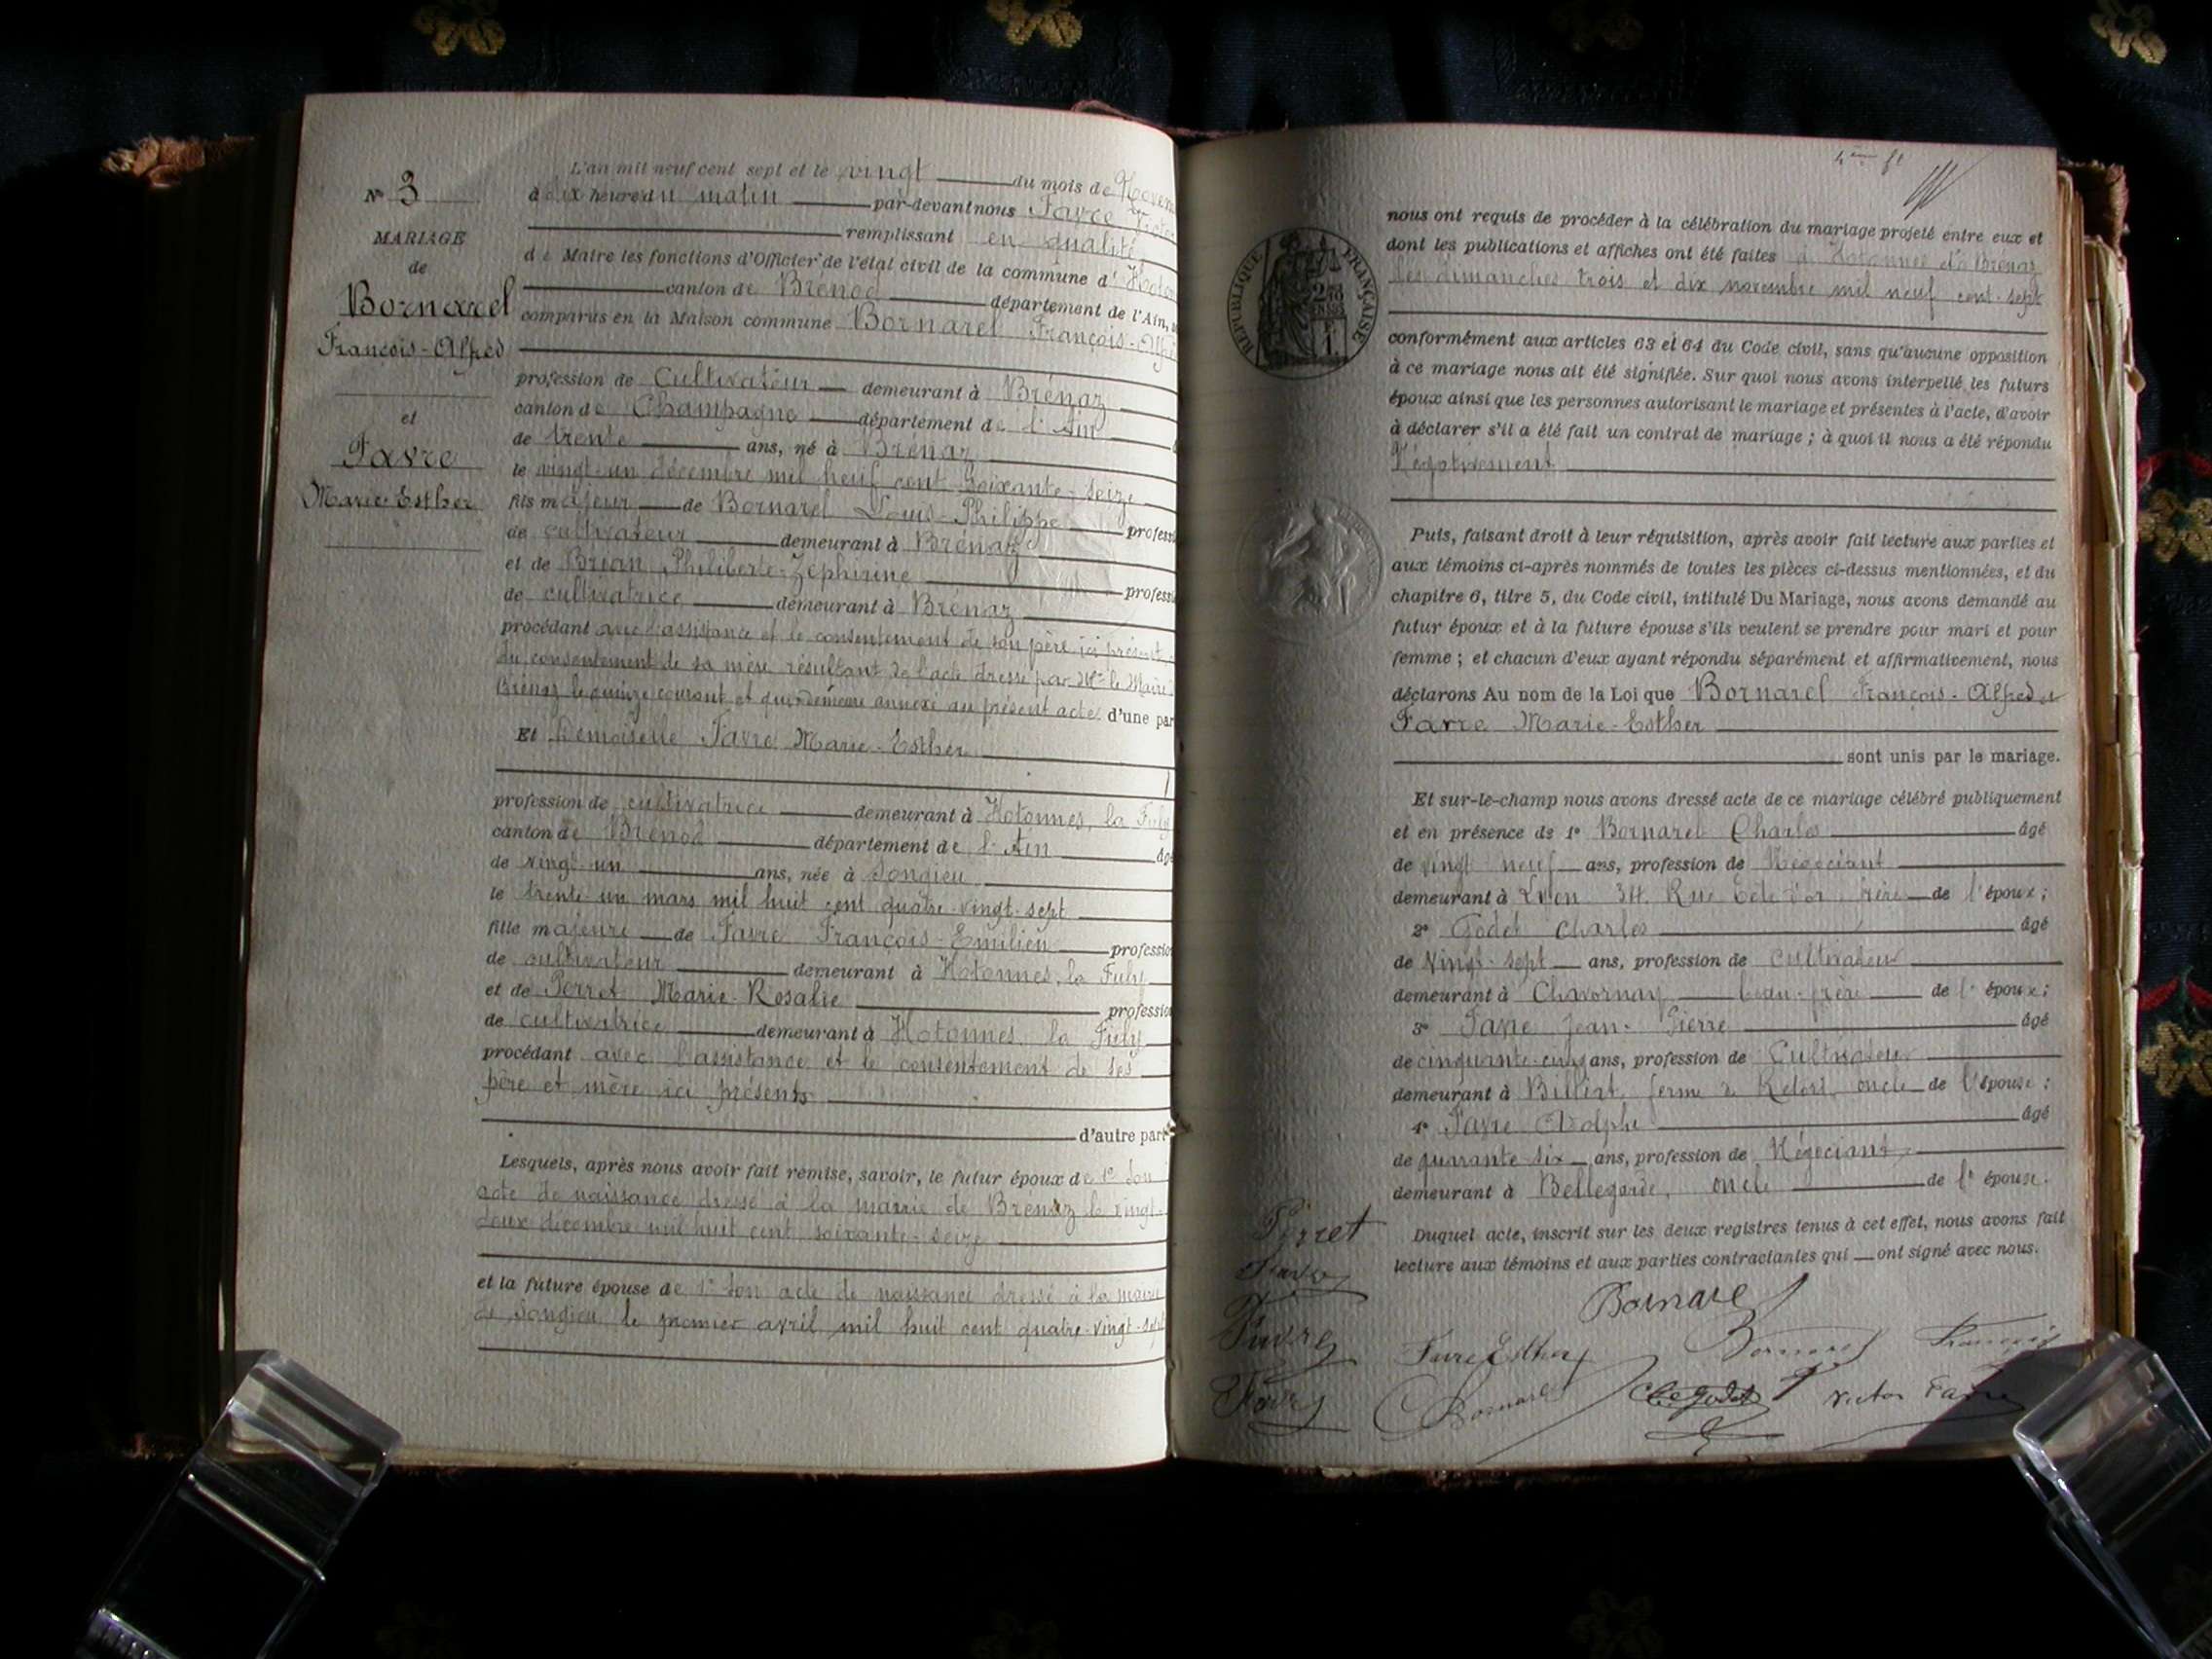 N° 3
MARIAGE
de
Bornarel
François-Alfred
et
Favre
Marie-Esther
L'an mil neuf cent sept et le vingt du mois de
à dix heure du matin par-devant nous Favre
remplissant en qualité
de Maire les fonctions d'Officier de l'état civil de la commune d'
canton de Brénod département de l'Ain,
comparus en la Maison commune Bornarel François-
profession de Cultivateur demeurant à Brénaz
canton de Champagne département de l'Ain
de trente ans, né à Brénaz
le vingt-un décembre mil neuf cent soixante-seize
fils majeur de Bornarel Louis-Philippe
de cultivateur demeurant à Brénaz
et de Brian Philiberte-Zéphirine
de cultivatrice demeurant à Brénaz
procédant avec l'assistance et le consentement de son père ici présent,
du consentement de sa mère résultant de l'acte dressé par Mr le Maire
Brénaz le quinze courant et qui demeure annexé au présent acte. d'une par
Et Demoiselle Favre Marie-Esther
profession de cultivatrice demeurant à Hotonnes, la
canton de Brénod département de l'Ain
de vingt-un ans, née à Songieu
le trente un mars mil huit cent quatre-vingt-sept
fille majeure de Favre François-Emilien
de cultivateur demeurant à Hotonnes, la
et de Perret Marie-Rosalie
de cultivatrice demeurant à Hotonnes, la
procédant avec l'assistance et le consentement de ses
père et mère ici présents
d'autre part
Lesquels, après nous avoir fait remise, savoir, le futur époux de 1° son
acte de naissance dressé à la mairie de Brénaz le vingt-
deux décembre mil huit cent soixante-seize
et la future épouse de 1° son acte de naissance dressé à la mairie
de Songieu le premier avril mil huit cent quatre-vingt-sept
RÉPUBLIQUE FRANÇAISE
nous ont requis de procéder à la célébration du mariage projeté entre eux et
dont les publications et affiches ont été faites à Hotonnes et à Brénaz
les dimanches trois et dix novembre mil neuf cent-sept
conformément aux articles 63 et 64 du Code civil, sans qu'aucune opposition
à ce mariage nous ait été signifiée. Sur quoi nous avons interpellé les futurs
époux ainsi que les personnes autorisant le mariage et présentes à l'acte, d'avoir
à déclarer s'il a été fait un contrat de mariage ; à quoi il nous a été répondu
Négativement
Puis, faisant droit à leur réquisition, après avoir fait lecture aux parties et
aux témoins ci-après nommés de toutes les pièces ci-dessus mentionnées, et du
chapitre 6, titre 5, du Code civil, intitulé Du Mariage, nous avons demandé au
futur époux et à la future épouse s'ils veulent se prendre pour mari et pour
femme ; et chacun d'eux ayant répondu séparément et affirmativement, nous
déclarons Au nom de la Loi que Bornarel François-Alfred et
Favre Marie-Esther
sont unis par le mariage.
Et sur-le-champ nous avons dressé acte de ce mariage célébré publiquement
et en présence de 1° Bornarel Charles âgé
de vingt-neuf ans, profession de Négociant
demeurant à Lyon 34 Rue frère de l'époux;
2° Godet Charles âgé
de Vingt-sept ans, profession de cultivateur
demeurant à Chavornay beau-frère de l'époux;
3° Favre Jean-Pierre âgé
de cinquante-cinq ans, profession de Cultivateur
demeurant à ferme oncle de l'épouse;
4° Favre Adolphe âgé
de quarante six ans, profession de Négociant
demeurant à Bellegarde, oncle de l'épouse.
Duquel acte, inscrit sur les deux registres tenus à cet effet, nous avons fait
lecture aux témoins et aux parties contractantes qui ont signé avec nous.
Perret
Favre
Favre
Bornarel
Favre Esther
Bornarel François
Bornarel
Victor Favre